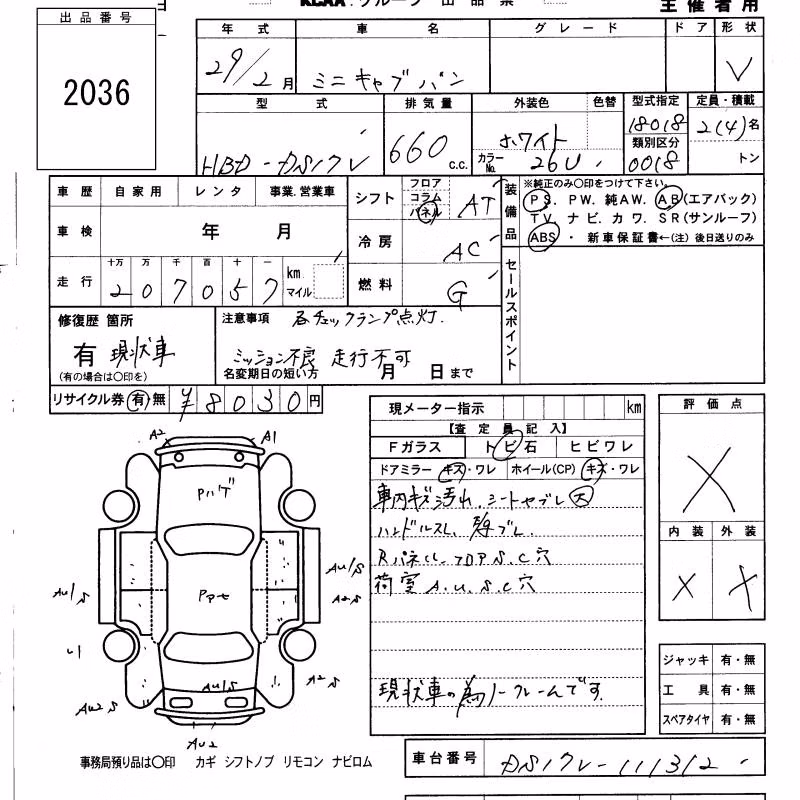 KCAA・グループ 出品票
主催者用
出品番号
2036
年式 車名 グレード ドア 形状
29/2月 ミニキャブバン V
型式 排気量 外装色 色替 型式指定 定員・積載
HBD-DS17V 660 c.c. ホワイト カラーNo. 26U 18018 2(4)名
類別区分 0018 トン
車歴 自家用 レンタ 事業.営業車
車検 年 月
走行 十万 万 千 百 十 一 km マイル
207057
シフト フロア コラム パネル AT
冷房 AC
燃料 G
装備品 ※純正のみ〇印をつけて下さい。
PS. PW. 純AW. AB(エアバック)
TV. ナビ. カワ. SR(サンルーフ)
ABS ・ 新車保証書←(注) 後日送りのみ
セールスポイント
修復歴 箇所
有 現状車
(有の場合は〇印を)
注意事項 各チェックランプ点灯.
ミッション不良 走行不可
名変期日の短い方 月 日まで
リサイクル券 有・無 ¥8030円
現メーター指示 km
【査定員記入】
Fガラス トビ石 ヒビワレ
ドアミラー キズ・ワレ ホイール(CP) キズ・ワレ
車内キズ汚れ. シートヤブレ大
ハンドルスレ.
Rパネル. フロアS.C穴
荷室 A.U.S.C穴
現状車の為ノークレームです.
評価点
X
内装 外装
X X
ジャッキ 有・無
工具 有・無
スペアタイヤ 有・無
A2 A1
Pハゲ
AU1S
AU1S A2S
U1
AU2S AU1S A2S
AU2
事務局預り品は〇印 カギ シフトノブ リモコン ナビロム
車台番号 DS17V-111312